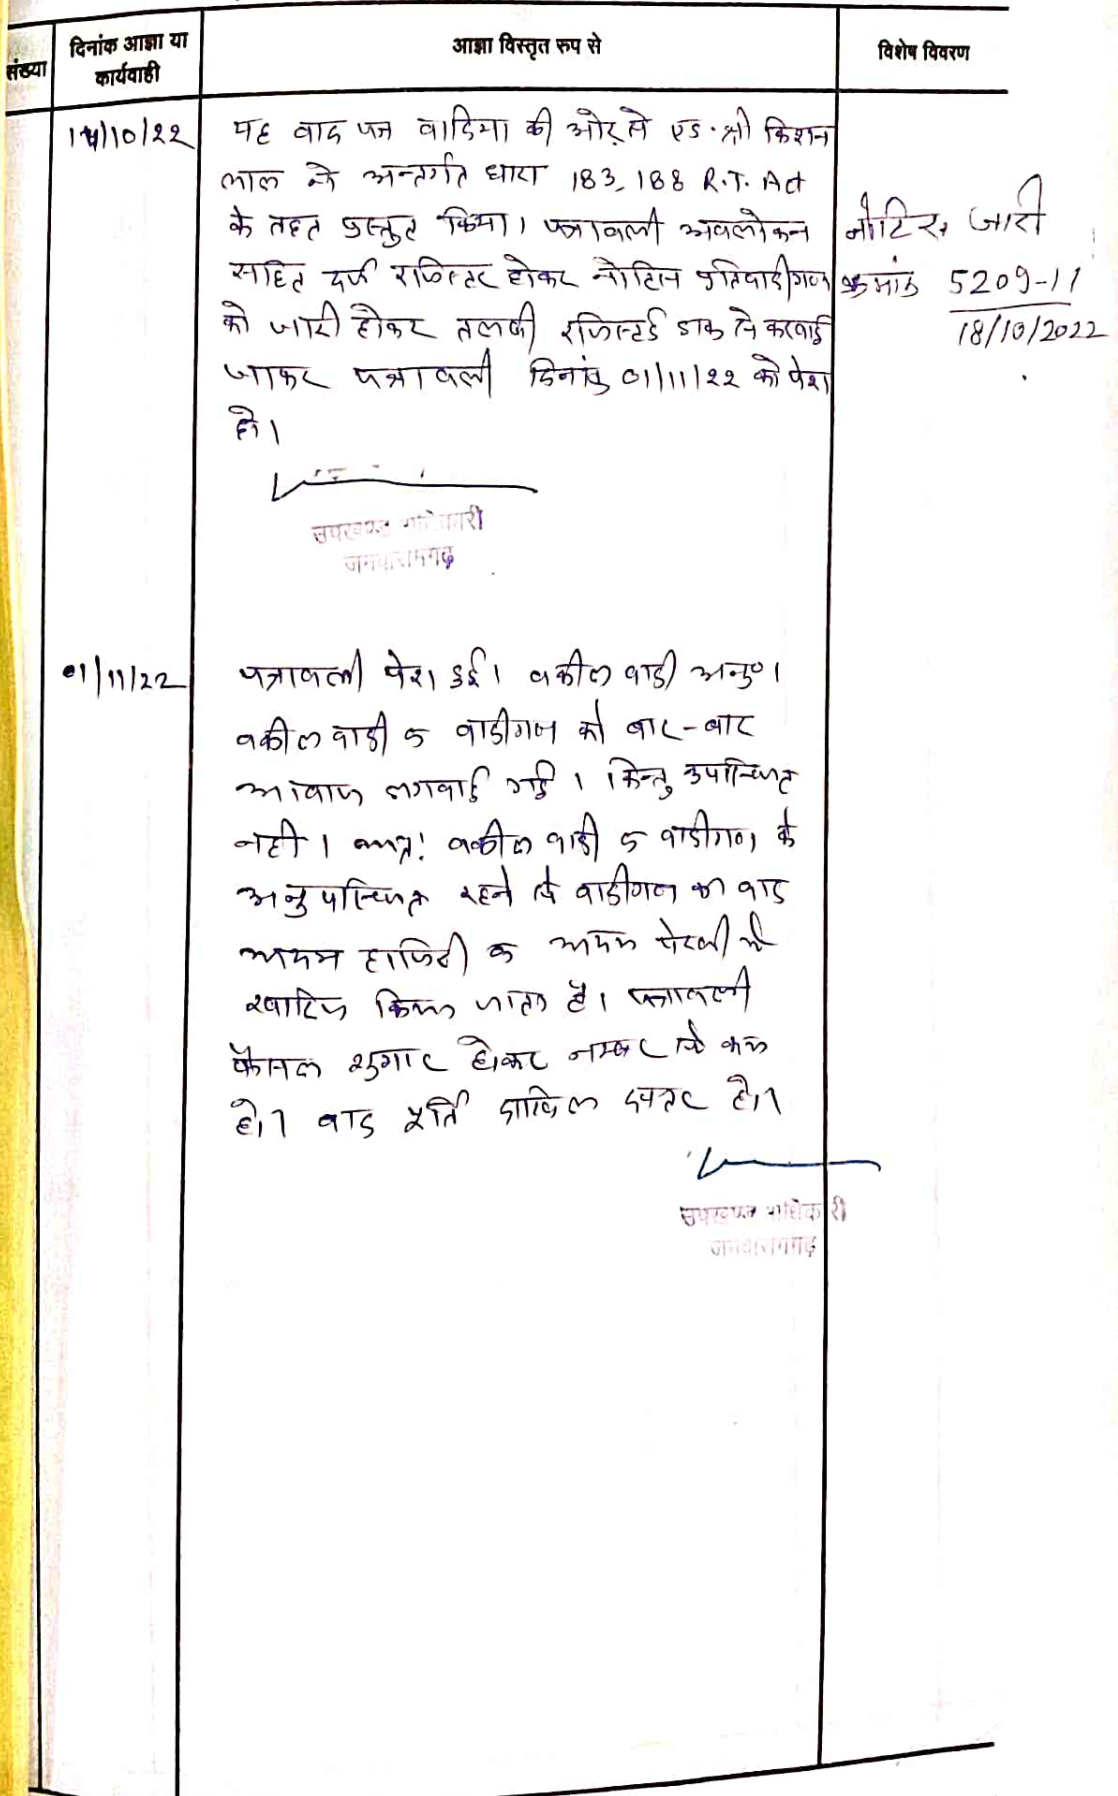 संख्या
दिनांक आज्ञा या
कार्यवाही
आज्ञा विस्तृत रुप से
विशेष विवरण
14/10/22
यह वाद पत्र वादिया की ओर से एड. श्री किशन
लाल ने अन्तर्गत धारा 183, 188 R.T. Act
के तहत प्रस्तुत किया। पत्रावली अवलोकन
सहित दर्ज रजिस्टर होकर नोटिस प्रतिवादीगण
को जारी होकर तलबी रजिस्टर्ड डाक से करवाई
जाकर पत्रावली दिनांक 01/11/22 को पेश
हो।
नोटिस जारी
क्रमांक 5209-11
18/10/2022
उपखण्ड अधिकारी
जमवारामगढ़
01/11/22
पत्रावली पेश हुई। वकील वादी अनु०।
वकील वादी व वादीगण को बार-बार
आवाज लगवाई गई। किन्तु उपस्थित
नहीं। अतः वकील वादी व वादीगण के
अनुपस्थित रहने से वादीगण का वाद
अदम हाजिरी व अदम पैरवी में
खारिज किया जाता है। पत्रावली
फैसल शुमार होकर नम्बर से कम
हो। बाद पूर्ति दाखिल दफ्तर हो।
उपखण्ड अधिकारी
जमवारामगढ़